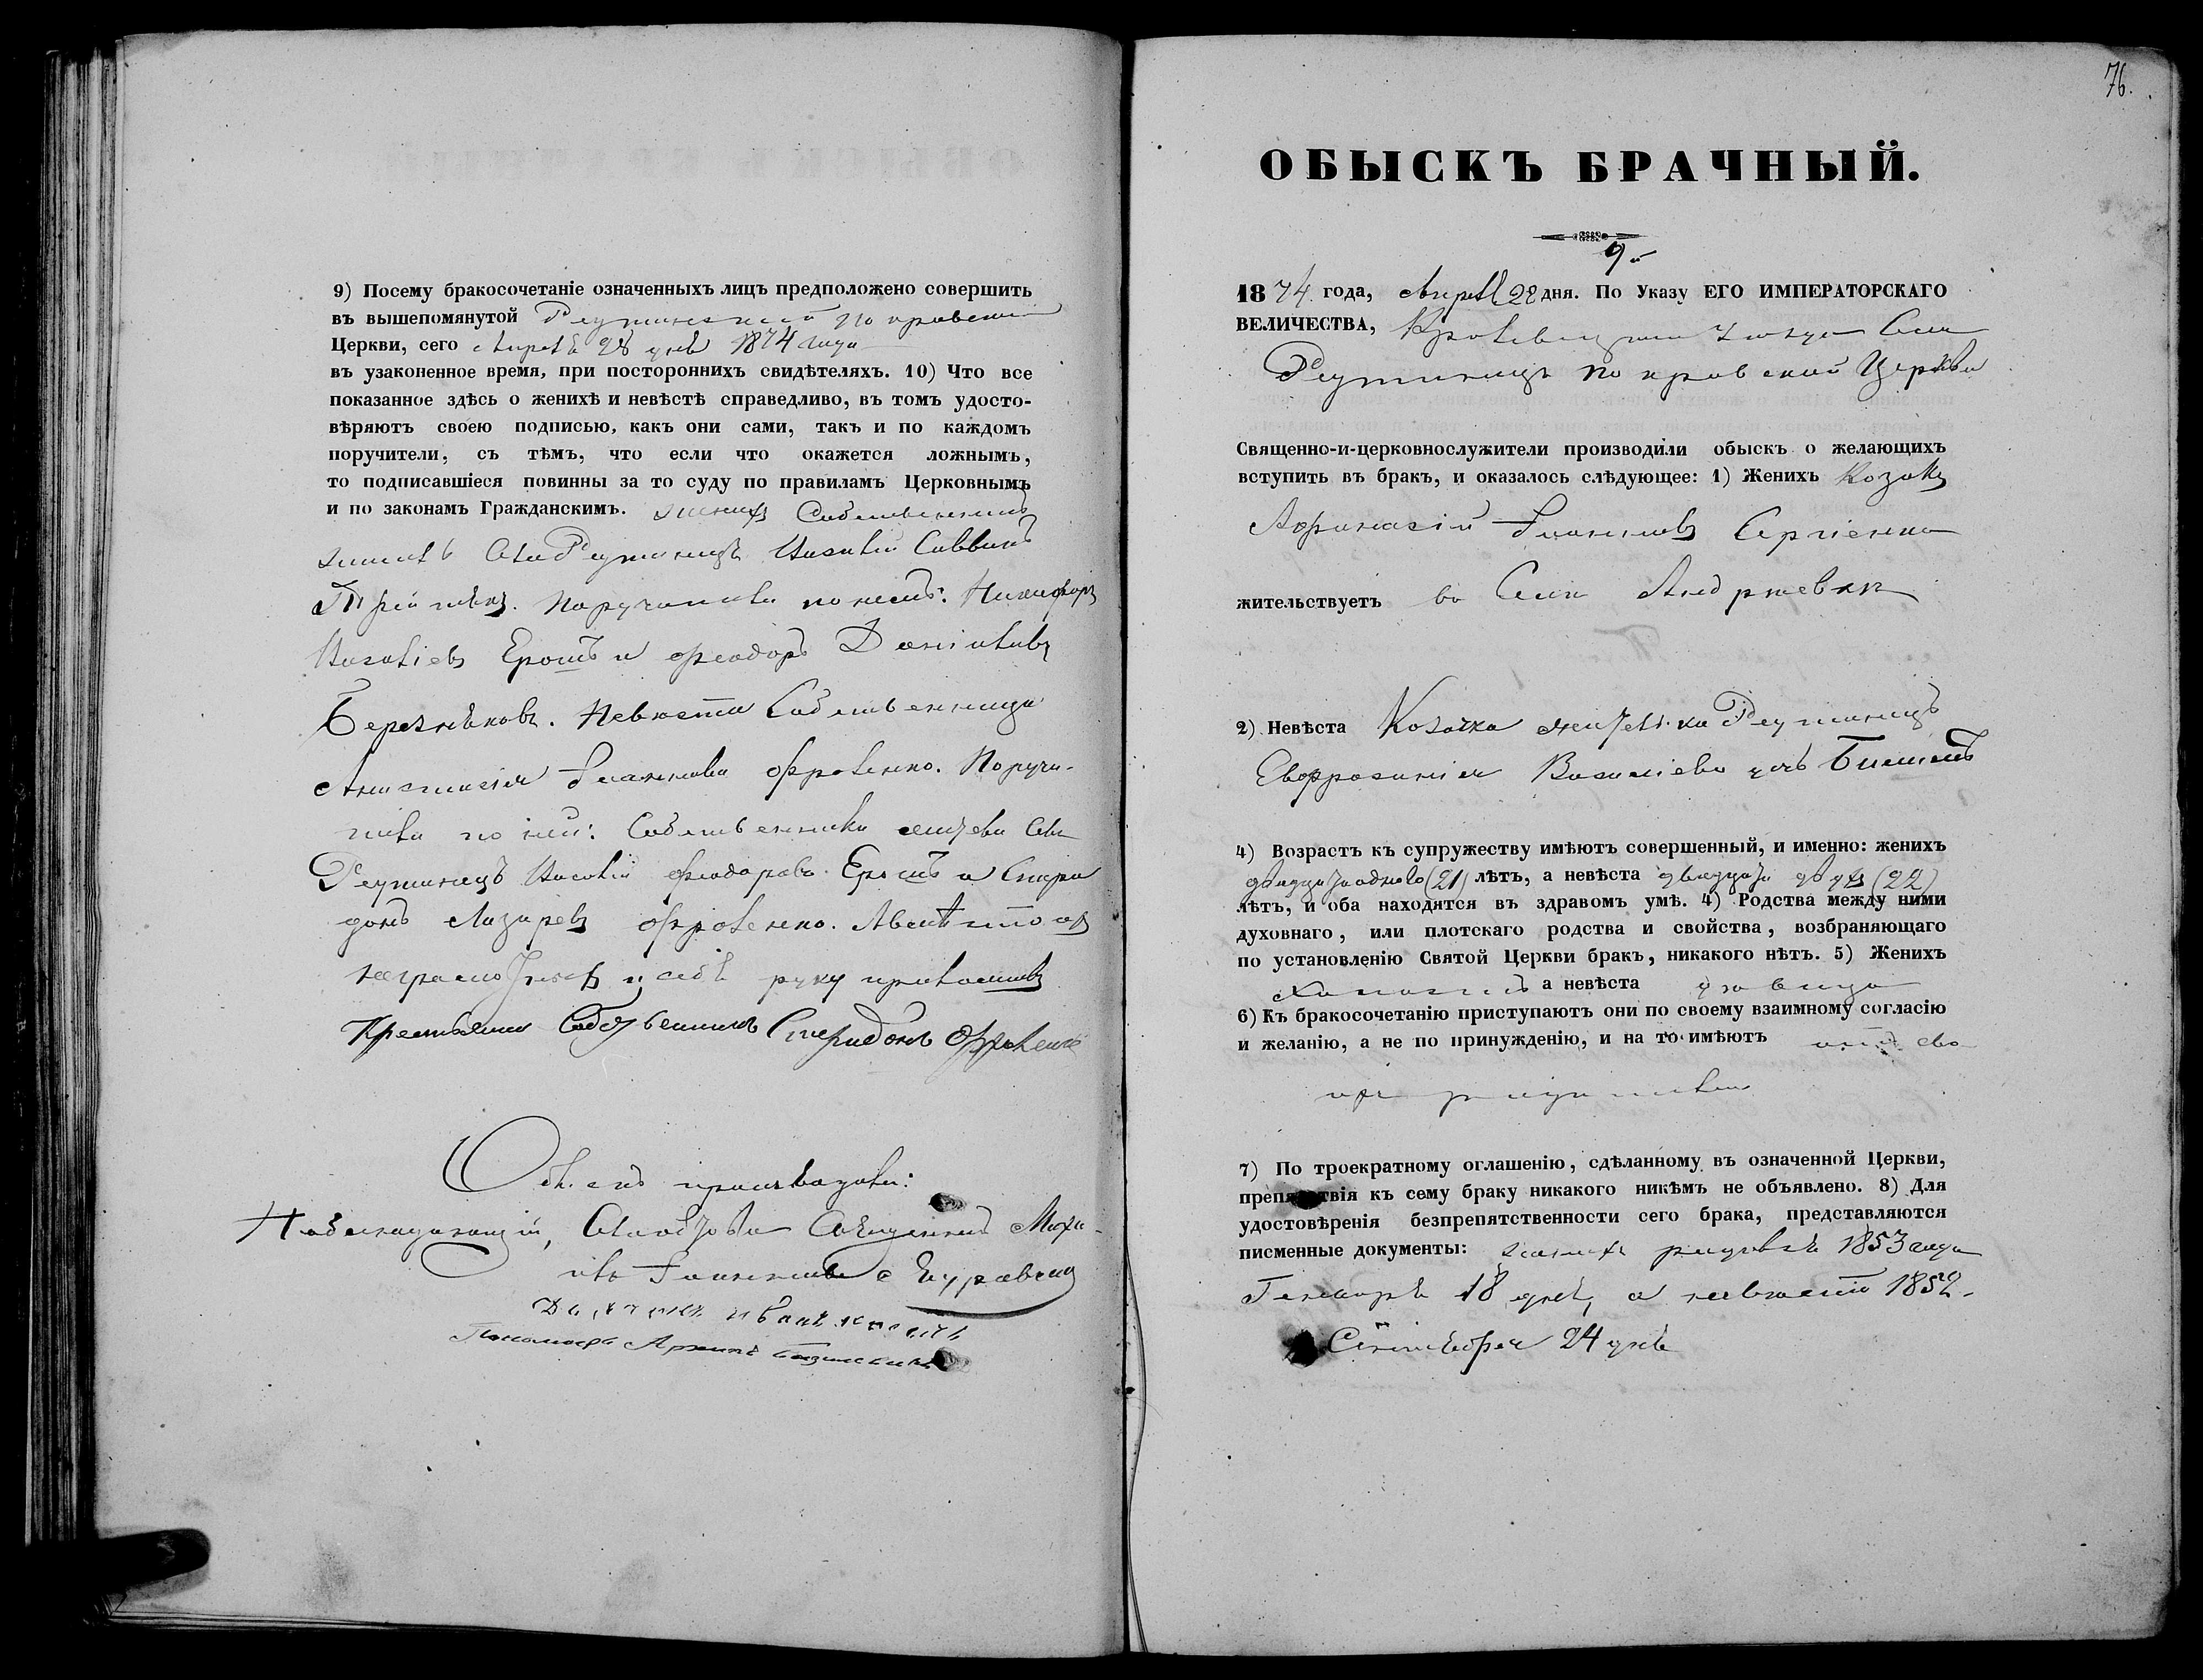 9) Посему бракосочетаніе означенныхъ лицъ предположено совершить
въ вышепомянутой Реутинской Покровской
Церкви, сего Апреля 28 дня 1874 года
въ узаконенное время, при постороннихъ свидѣтеляхъ. 10) Что все
показанное здѣсь о женихѣ и невѣстѣ справедливо, въ томъ удосто-
вѣряютъ своею подписью, какъ они сами, такъ и по каждомъ
поручители, съ тѣмъ, что если что окажется ложнымъ,
то подписавшіеся повинны за то суду по правиламъ Церковнымъ
и по законамъ Гражданскимъ. Женихъ Собственникъ
житель Села Реутинецъ Саввинъ
Поручители по немъ: Никифоръ
Ерошъ и Феодоръ Даніиловъ
Березняковъ. Невеста Собственница
Анастасія Іоаннова Фроленко. Поручи-
тели по ней: Собственники жители Села
Реутинецъ Феодоровъ Ерошъ и Спири
донъ Лазаревъ Фроленко. А вместо ихъ
неграмотныхъ и себе руку приложилъ
Крестьянин Собственникъ Спиридонъ Фроленко
Обыскъ производили:
Наблюдающій, Слободы Священникъ Миха-
илъ Іоанновъ
Пономарь
76.
ОБЫСКЪ БРАЧНЫЙ.
9й
1874 года, Апреля 28 дня. По Указу ЕГО ИМПЕРАТОРСКАГО
ВЕЛИЧЕСТВА, Кролевецкаго уезда Села
Реутинецъ Покровской Церкви
Священно-и-церковнослужители производили обыскъ о желающихъ
вступить въ бракъ, и оказалось слѣдующее: 1) Женихъ Козакъ
Афанасій Іоанновъ Сергіенко
жительствуетъ въ Селе Андреевке
2) Невѣста Козачка жителька Реутинецъ
Евфросинія Василіева дочь
4) Возрастъ къ супружеству имѣютъ совершенный, и именно: женихъ
двадцать одного (21) лѣтъ, а невѣста двадцати двухъ (22)
лѣтъ, и оба находятся въ здравомъ умѣ. 4) Родства между ними
духовнаго, или плотскаго родства и свойства, возбраняющаго
по установленію Святой Церкви бракъ, никакого нѣтъ. 5) Женихъ
Холостъ а невѣста девица
6) Къ бракосочетанію приступаютъ они по своему взаимному согласію
и желанію, а не по принужденію, и на то имѣютъ отъ сво
ихъ родителей
7) По троекратному оглашенію, сдѣланному въ означенной Церкви,
препятствія къ сему браку никакого никѣмъ не объявлено. 8) Для
удостовѣренія безпрепятственности сего брака, представляются
писменные документы: женихъ родился 1853 года
Генваря 18 дня, а невеста 1852
Сентября 24 дня